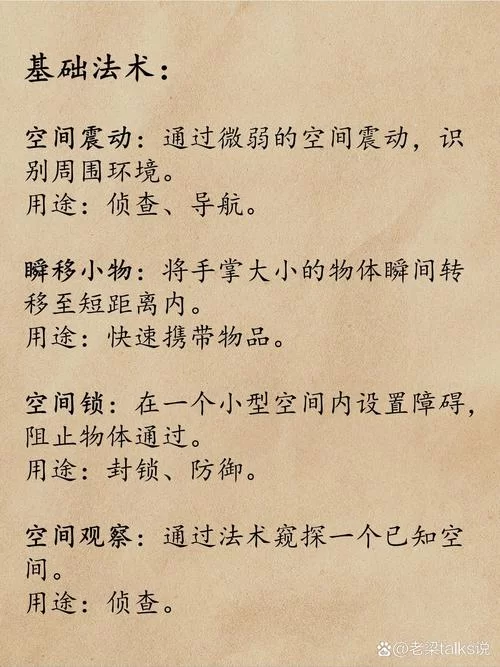 基础法术：
空间震动：通过微弱的空间震动，识
别周围环境。
用途：侦查、导航。
瞬移小物：将手掌大小的物体瞬间转
移至短距离内。
用途：快速携带物品。
空间锁：在一个小型空间内设置障碍，
阻止物体通过。
用途：封锁、防御。
空间观察：通过法术窥探一个已知空
间。
用途：侦查。
老梁talks说